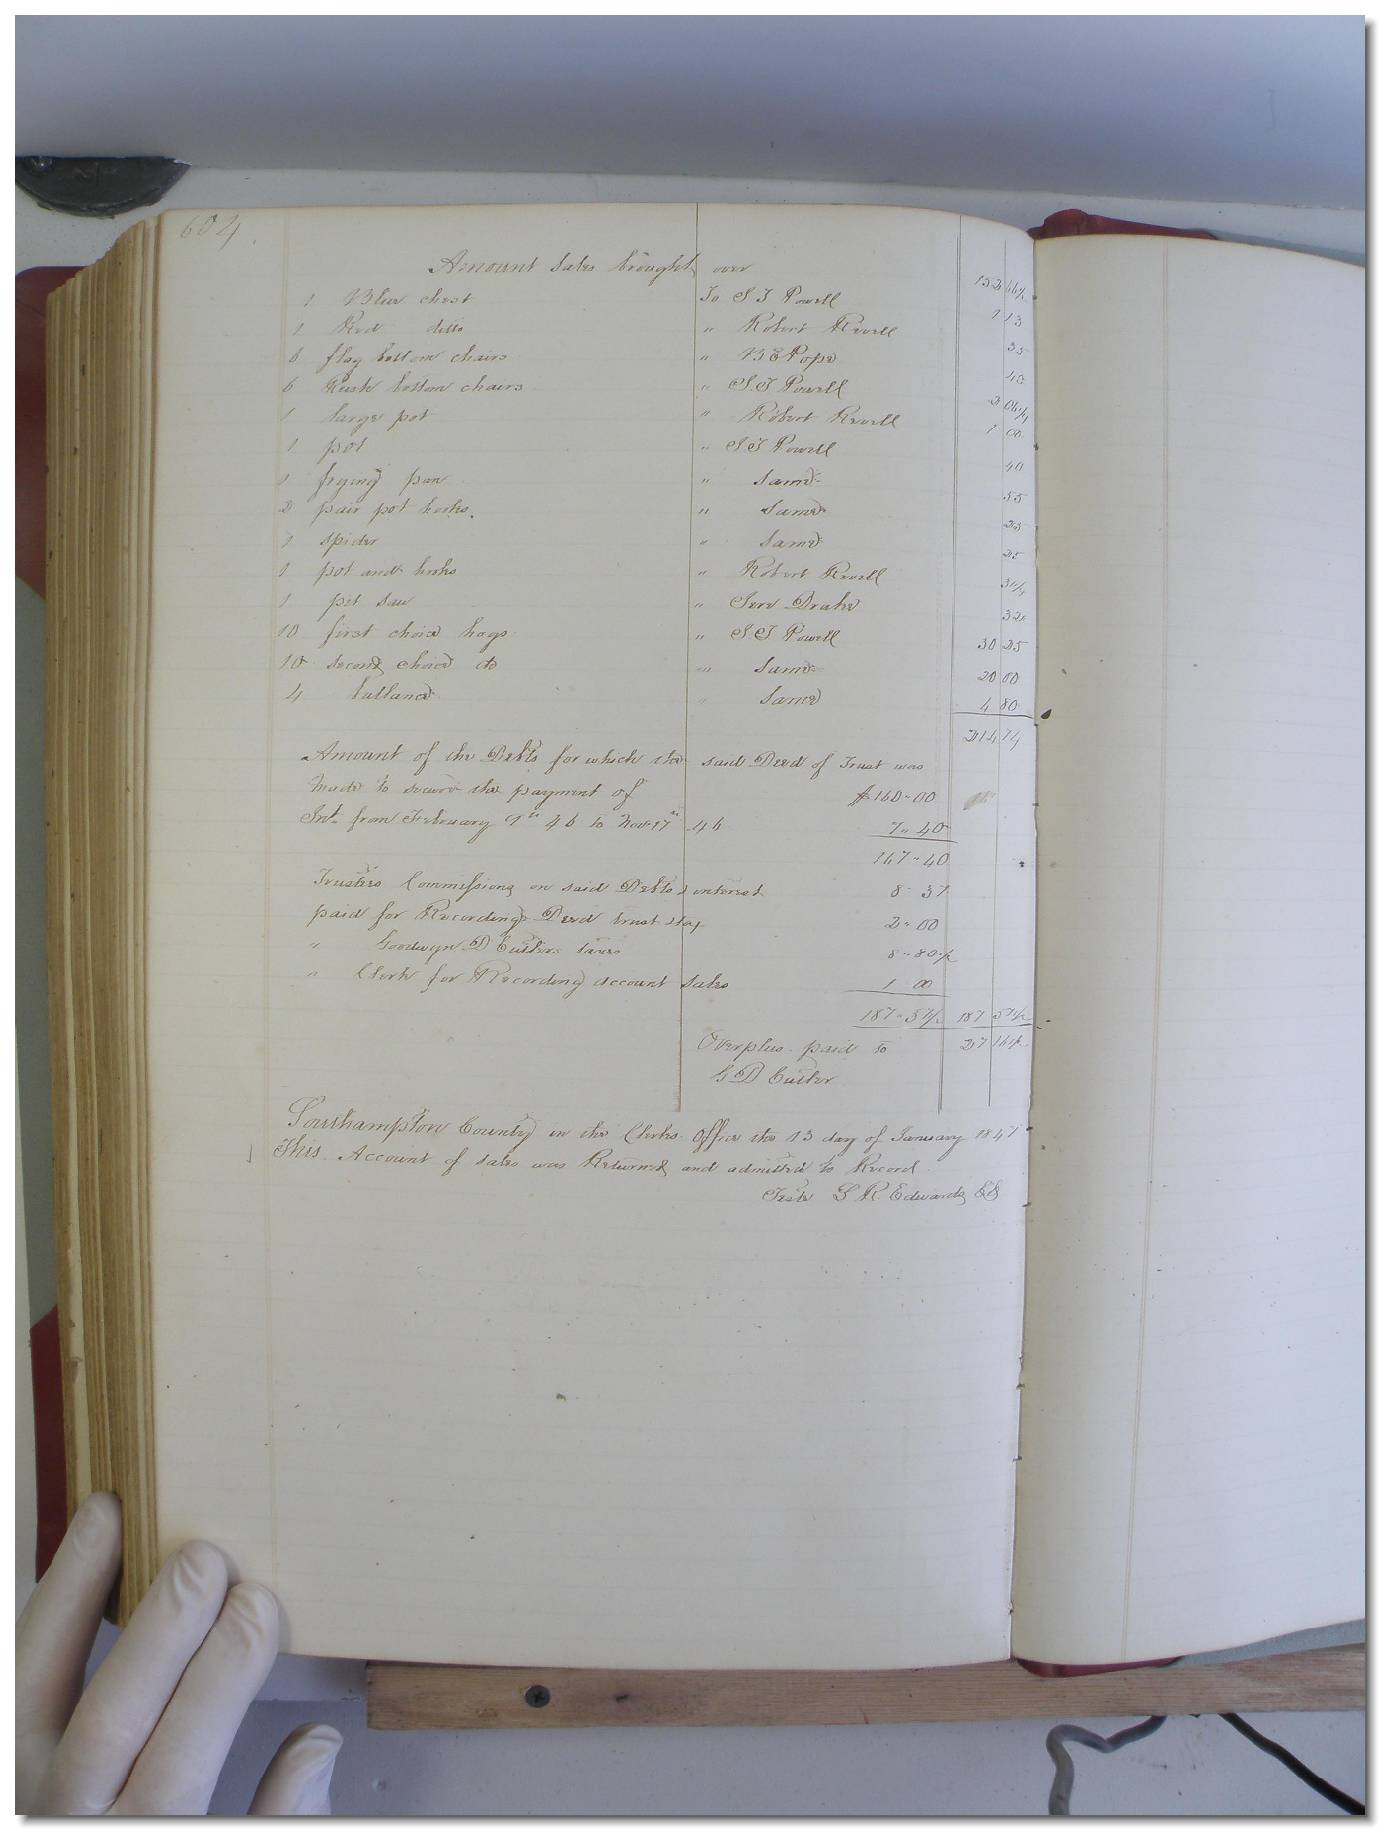 604
Amount Sales brought over 152
1 Blue chest To S J Powell 1 13
1 Red ditto " Robert Revell 35
6 flag bottom chairs " B E Pope
6 Rush bottom chairs " S J Powell 2
1 large pot " Robert Revell 1 00
1 pot " S J Powell 40
1 frying pan " Same 55
2 pair pot hooks " Same 25
1 spider " Same 25
1 pot and hooks " Robert Revell 31 1/4
1 pit saw " Jere Drake 32
10 first choice hogs " S J Powell 30 25
10 second choice do " Same 20 00
4 ballance " Same 4 80
214 74
Amount of the Debts for which the said Deed of Trust was
made to secure the payment of $160-00
Int. from February 9th 46 to Nov 17th 46 7" 40
167-40
Trustees Commissions on said Debts & interest 8-37
paid for Recording Deed trust 2"00
" Goodwyn D taxes 8"80 1/2
" Clerk for Recording account Sales 1 00
187"57 1/2 187 57 1/2
Overplus paid to 27 16 1/2
G D
Southampton County in the Clerks Office the 13 day of January 1847
This Account of sales was Returned and admitted to Record
Teste L R Edwards